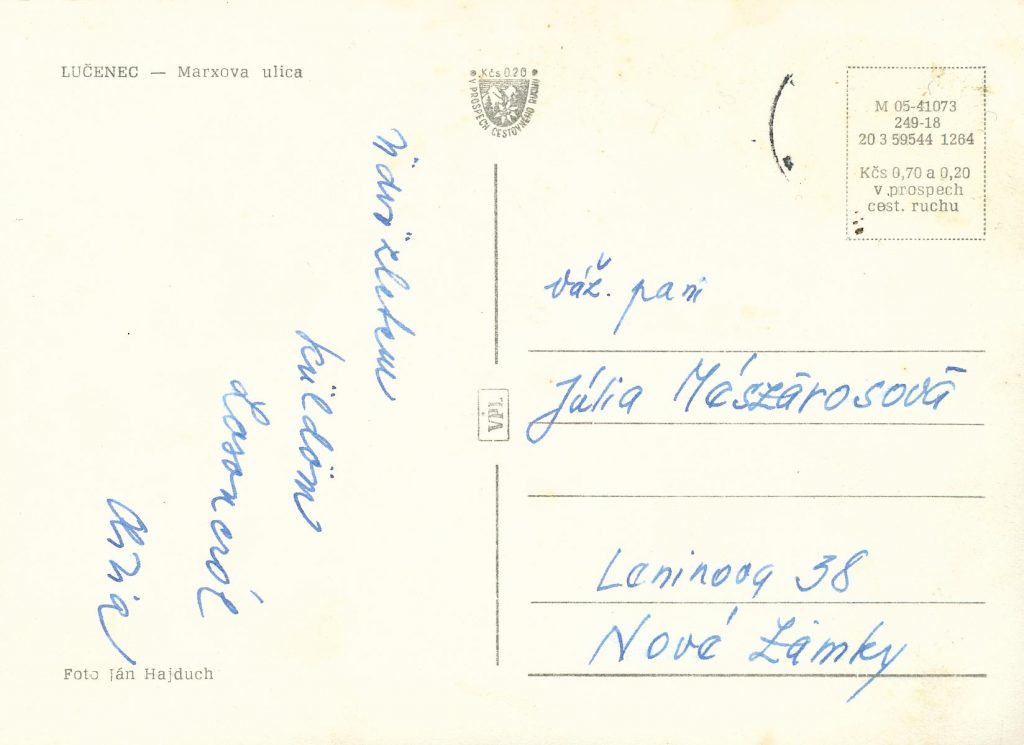 LUČENEC — Marxova ulica
Üdvözletem
küldöm
Losoncról
Foto Ján Hajduch
Kčs 0.20
V PROSPECH CESTOVNÉHO RUCHU
VpL
M 05-41073
249-18
20 3 59544 1264
Kčs 0,70 a 0,20
v prospech
cest. ruchu
váž. pani
Júlia Mészárosová
Leninova 38
Nové Zámky